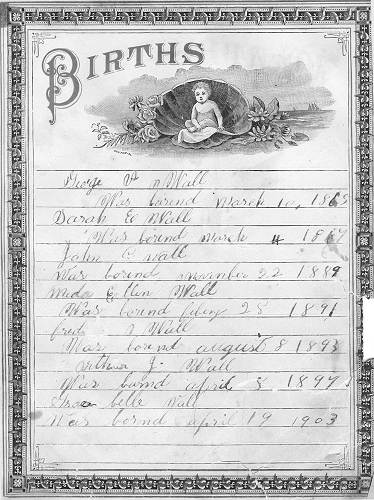 BIRTHS
George A n Wall
Was bornd March 10, 1865
Sarah E Wall
Was bornd March 4 1867
John C Wall
Was bornd november 22 1889
Ellen Wall
Was bornd 28 1891
fred n Wall
Was bornd august 8 1893
arthur J. Wall
Was bornd april 8 1897
belle Wall
Was bornd april 19 1903